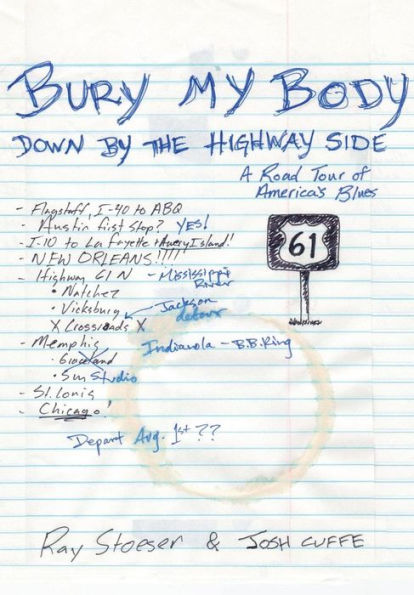 BURY MY BODY
DOWN BY THE HIGHWAY SIDE
A Road Tour of
America's Blues
- Flagstaff, I-40 to ABQ
- Austin first stop? YES!
- I-10 to La Fayette + Avery Island!
- NEW ORLEANS!!!!!
- Highway 61 N - Mississippi
River
• Natchez
• Vicksburg Jackson
detour
X Crossroads X
- Memphis Indianola - B.B. King
• Graceland
• Sun Studio
- St. Louis
- Chicago!
61
Depart Aug. 1st ??
Ray Stoeser & JOSH CUFFE